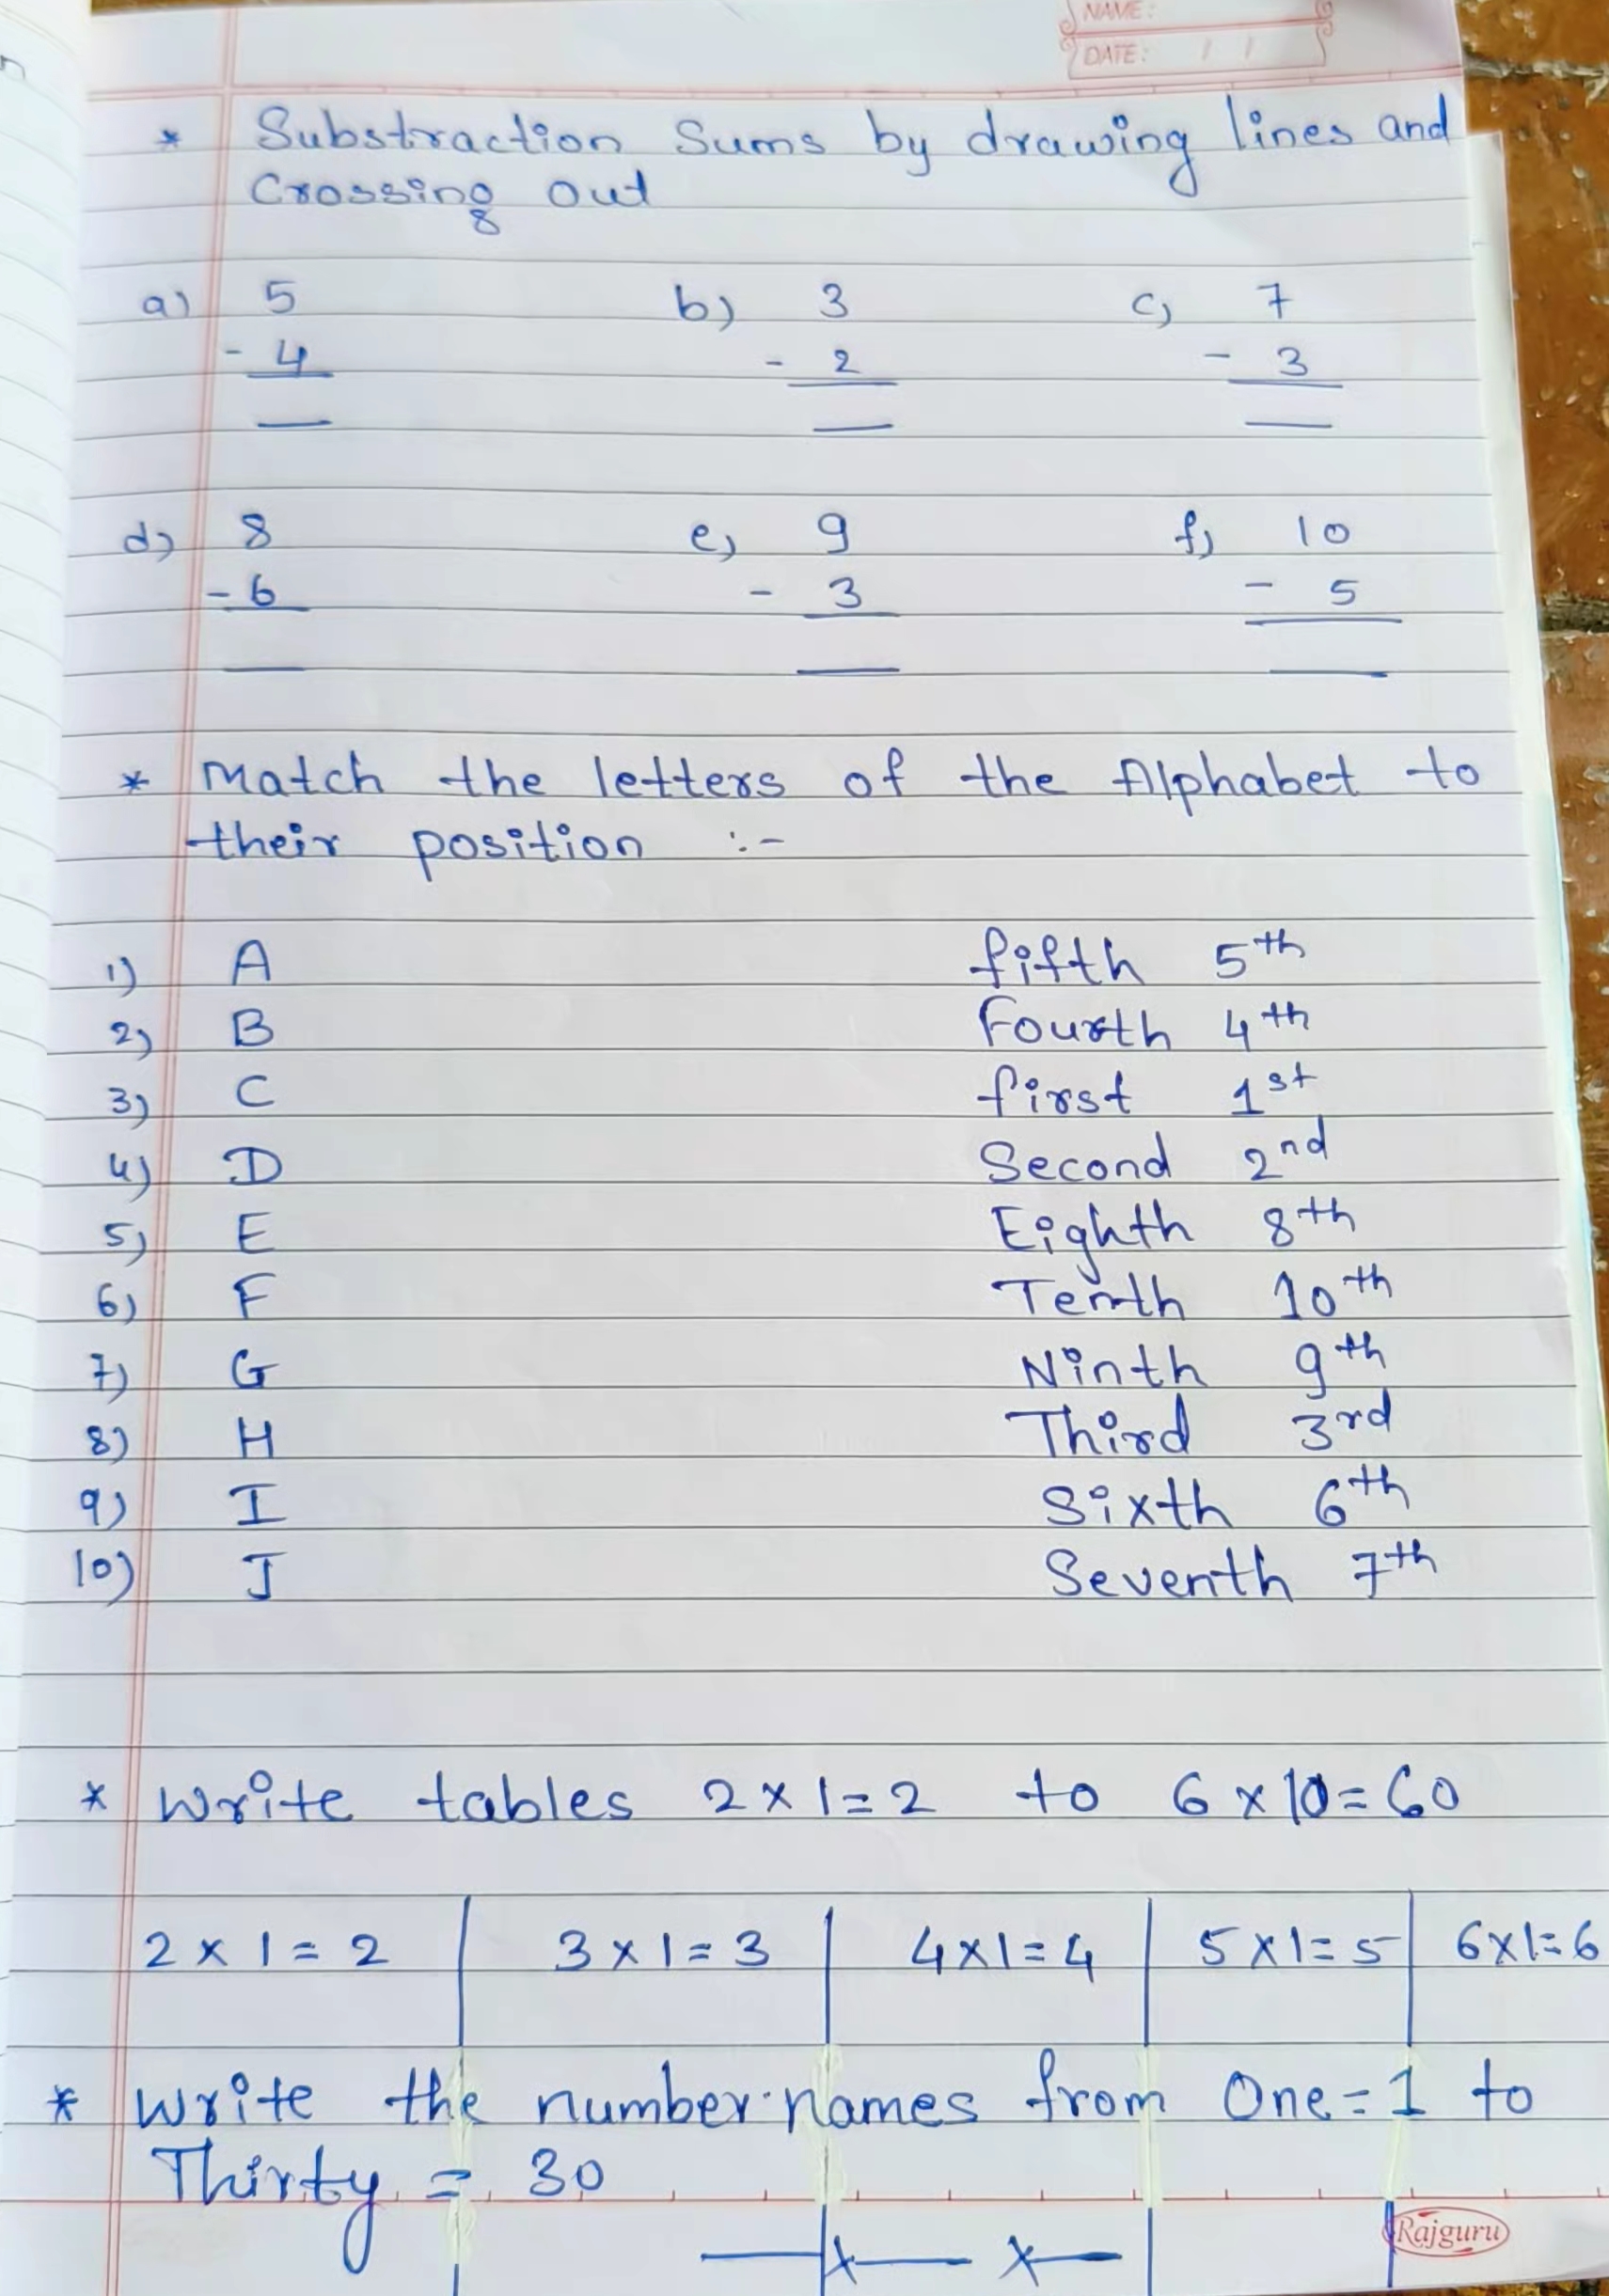 NAME:
DATE: / /
* Substraction Sums by drawing lines and
Crossing out
a) 5 b) 3 c) 7
- 4 - 2 - 3
d) 8 e) 9 f) 10
- 6 - 3 - 5
* Match the letters of the Alphabet to
their position :-
1) A fifth 5th
2) B Fourth 4th
3) C first 1st
4) D Second 2nd
5) E Eighth 8th
6) F Tenth 10th
7) G Ninth 9th
8) H Third 3rd
9) I Sixth 6th
10) J Seventh 7th
* Write tables 2 x 1 = 2 to 6 x 10 = 60
2 x 1 = 2 3 x 1 = 3 4 x 1 = 4 5 x 1 = 5 6 x 1 = 6
* Write the number names from One = 1 to
Thirty = 30
Rajguru